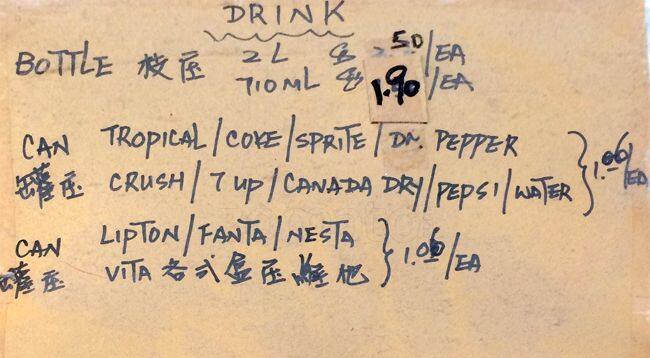 DRINK
BOTTLE 枝庒 2L 50/EA
710ML 1.90/EA
CAN TROPICAL/COKE/SPRITE/DR. PEPPER
罐庒 CRUSH/7 UP/CANADA DRY/PEPSI/WATER 1.00/EA
CAN LIPTON/FANTA/NESTA
罐庒 VITA 各式盒庒 1.00/EA